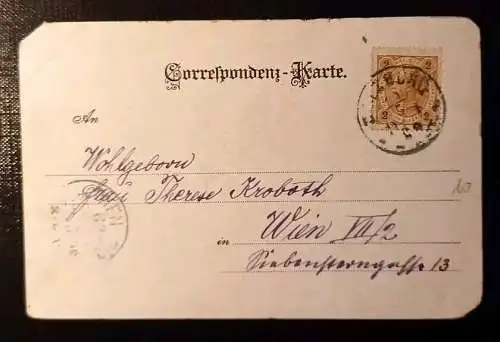 Correspondenz-Karte.
2 2
2 2
An
Wohlgeborn
Frau Therese Kroboth
in Wien VII/2
Siebensterngasse 13